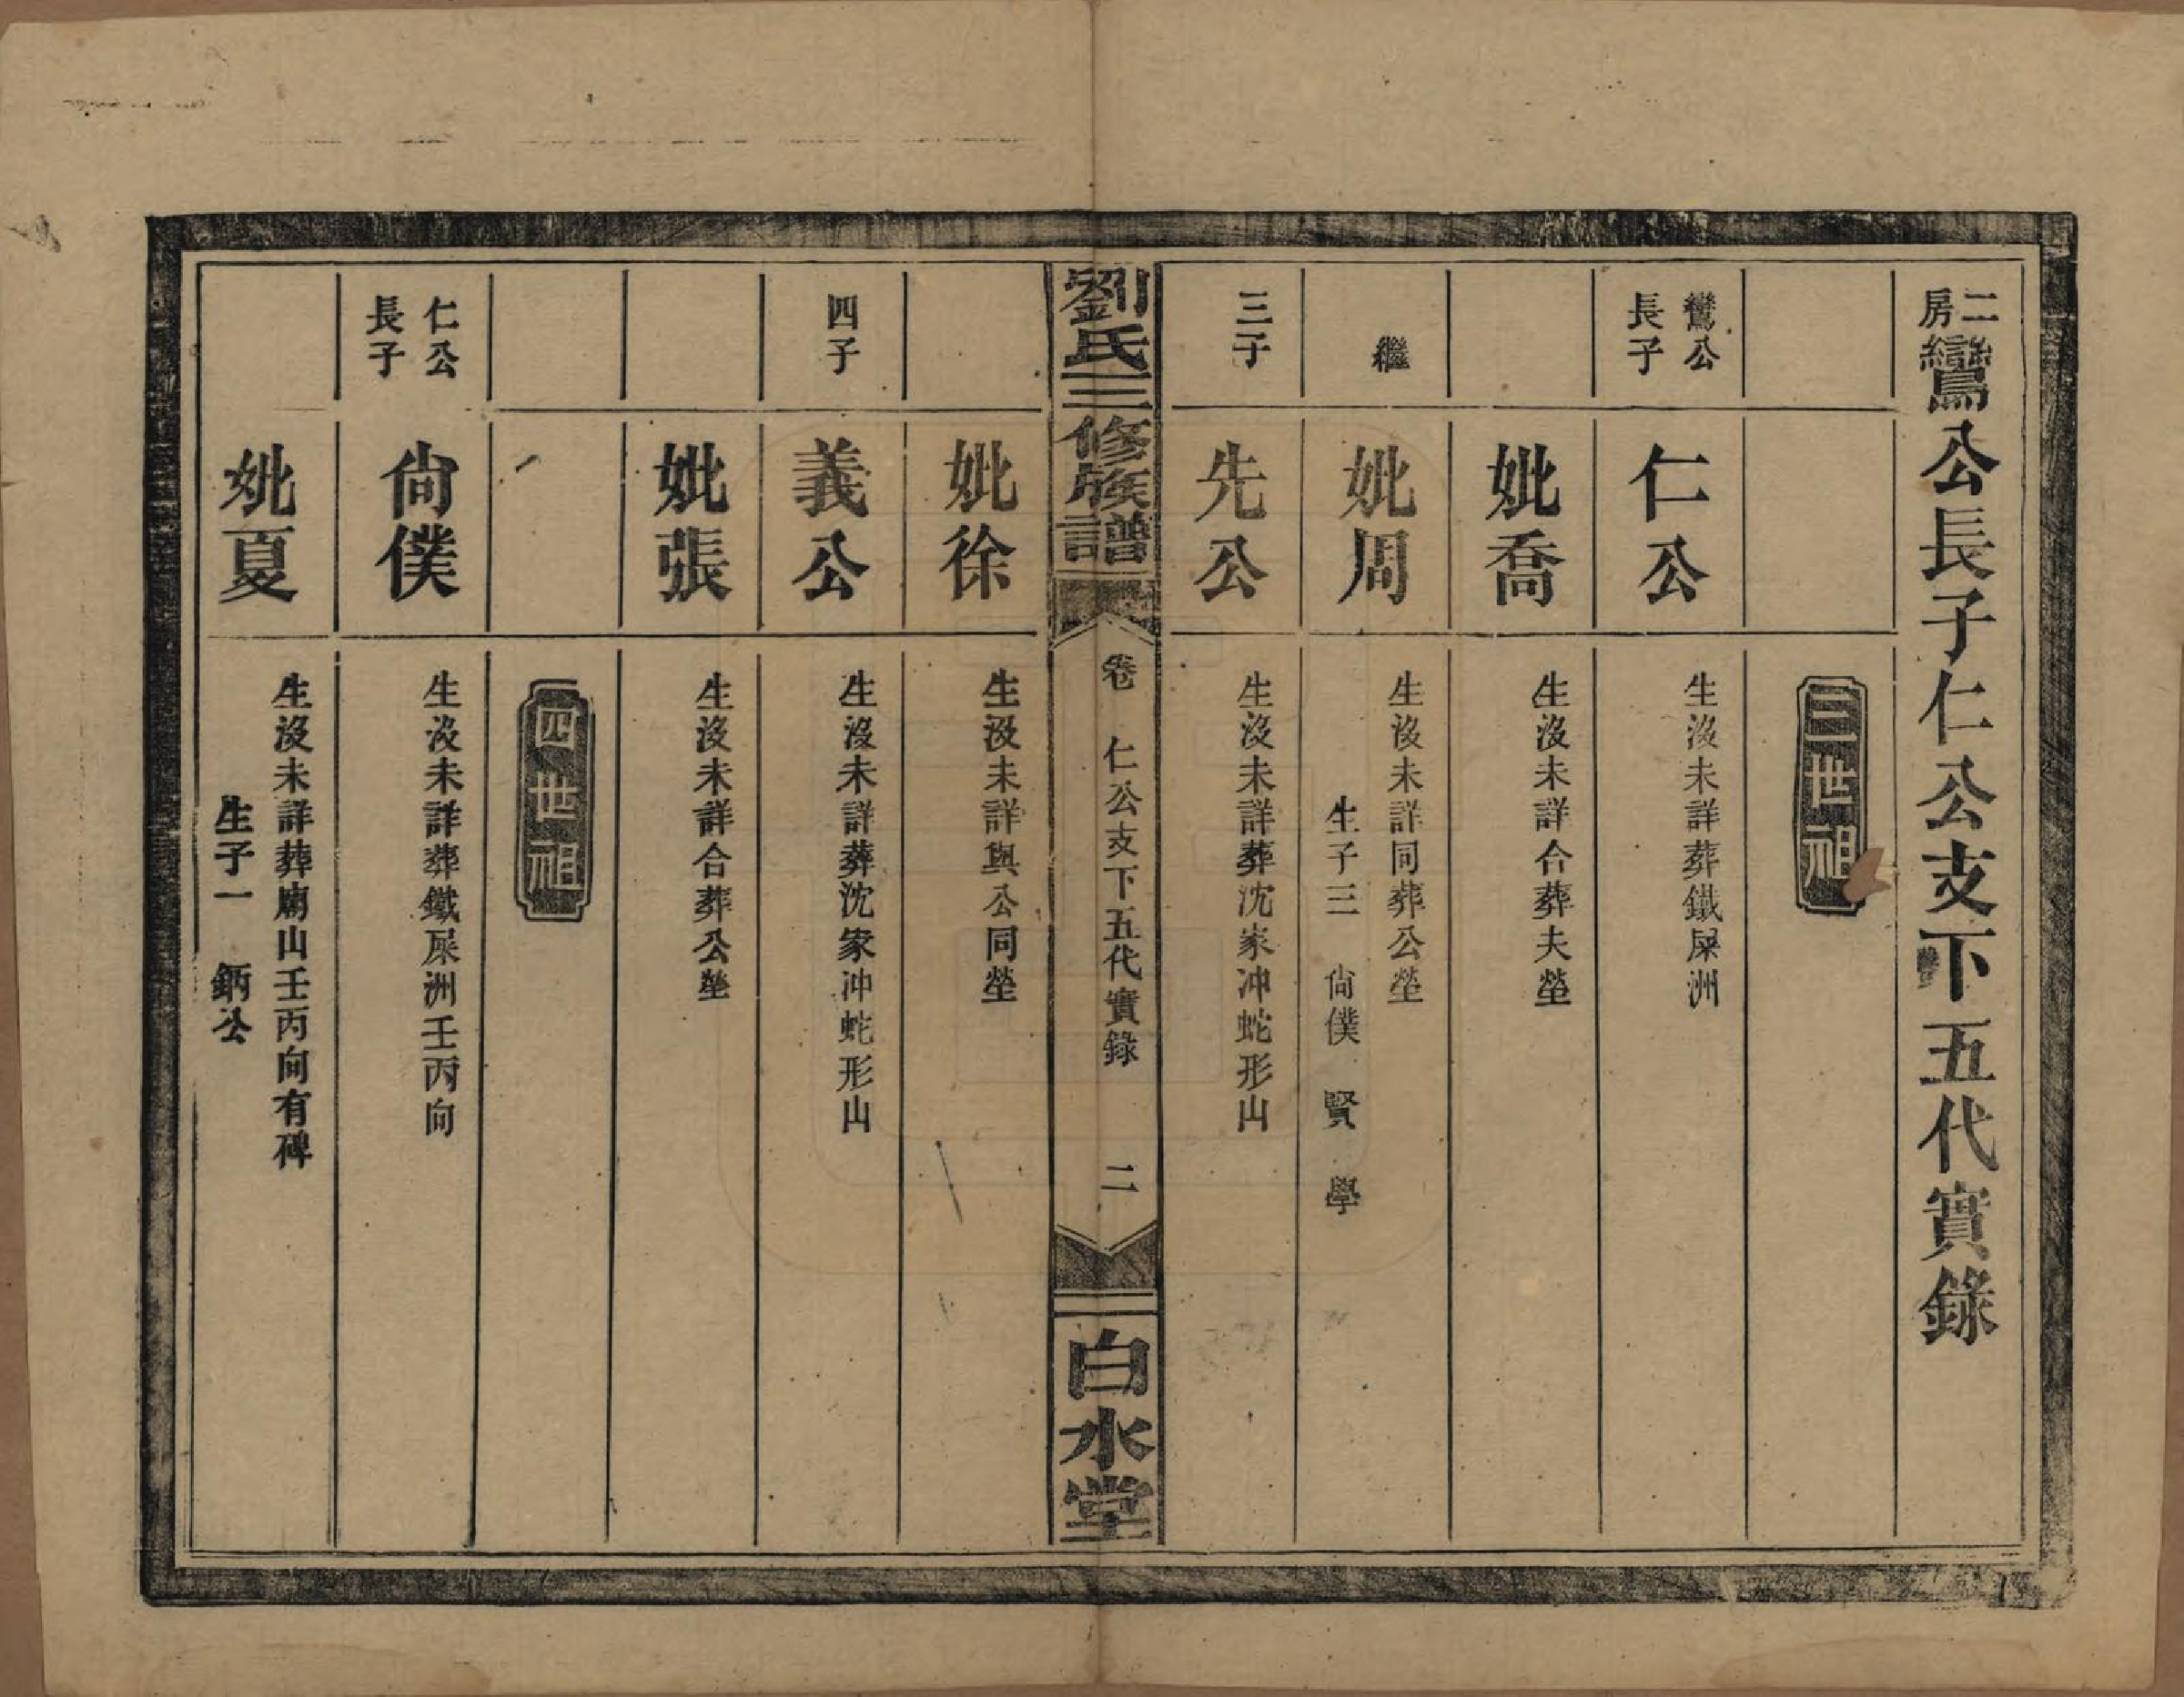 二房鸞公長子仁公支下五代實錄
三世祖
鸞公長子
仁公
生沒未詳葬鐵屎洲
妣喬
生沒未詳合葬夫塋
繼
妣周
生沒未詳同葬公塋
生子三 尙僕 賢 學
三子
先公
生沒未詳葬沈家冲蛇形山
劉氏三修族譜
卷 仁公支下五代實錄 二
白水堂
妣徐
生沒未詳與公同塋
四子
義公
生沒未詳葬沈家冲蛇形山
妣張
生沒未詳合葬公塋
四世祖
仁公長子
尙僕
生沒未詳葬鐵屎洲壬丙向
妣夏
生沒未詳葬廟山壬丙向有碑
生子一 鈵公